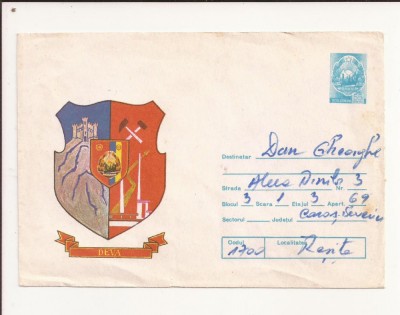 DEVA
Destinatar Dan Gheorghe
Strada Aleea Nr. 3
Blocul 3 Scara 1 Etajul 3 Apart. 69
Sectorul Județul Caraș Severin
Codul Localitatea
1700 Reșița